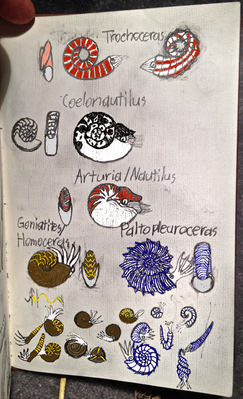 Trochoceras
Coelonautilus
Arturia/Nautilus
Goniatites/
Homoceras
Paltopleuroceras